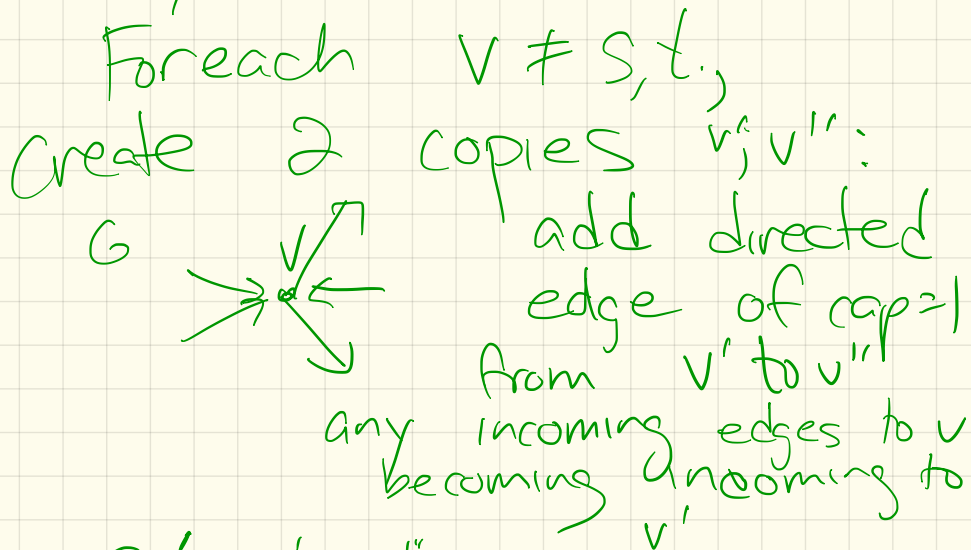 Foreach V ≠ s,t.,
create 2 copies v', v'' :
G
V
add directed
edge of cap=1
from v' to v''
any incoming edges to v
becoming incoming to
v'